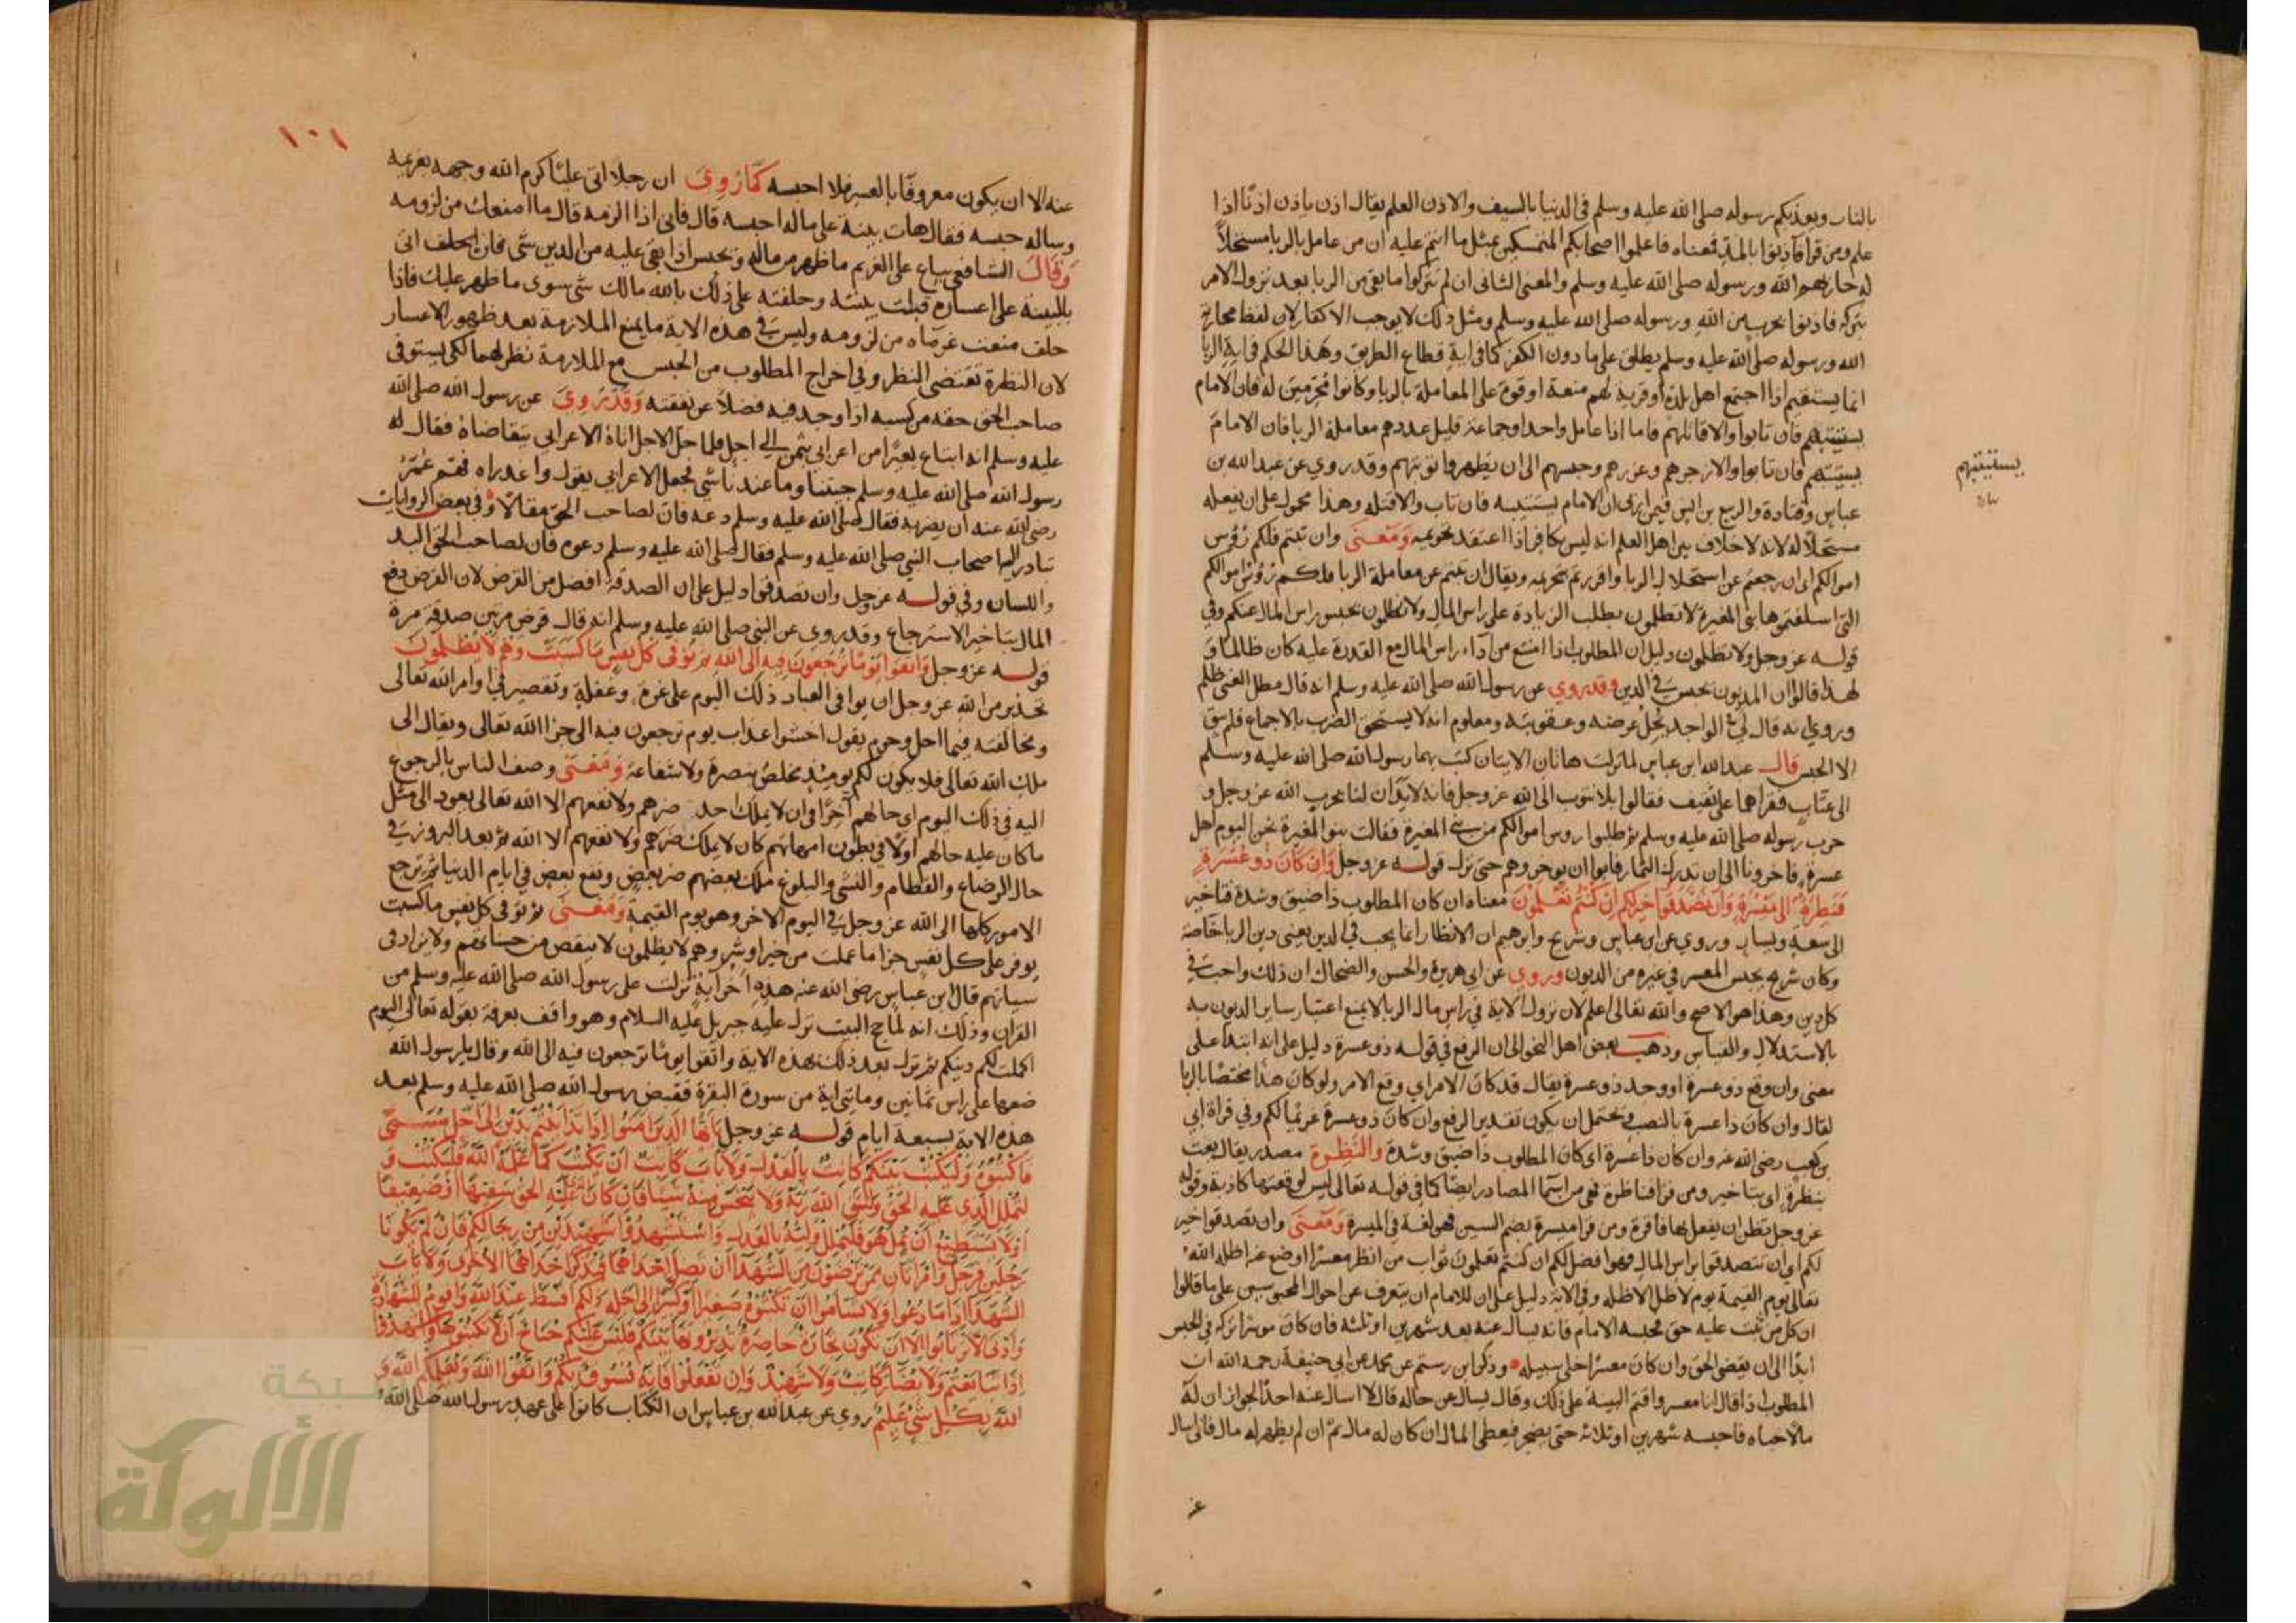 بالنار ويعذبكم رسوله صلى الله عليه وسلم في الدنيا بالسيف والاذن العلم يقال اذن ياذن اذنا اذا
علم ومن قرا فآذنوا بالمد فمعناه فاعلموا اصحابكم المتمسكين بمثل ما انتم عليه ان من عامل بالربا مستحلاً
له حاربهم الله ورسوله صلى الله عليه وسلم والمعنى الثاني ان لم تتركوا ما بقي من الربا بعد نزول الامر
بتركه فاذنوا بحرب من الله ورسوله صلى الله عليه وسلم ومثل ذلك لا يوجب الاكفار لان لفظ محاربة
الله ورسوله صلى الله عليه وسلم يطلق على ما دون الكفر كما في اية قطاع الطريق وهذا الحكم في اية الربا
انما يستقيم اذا اجتمع اهل بلدة او قرية لهم منعة او قوة على المعاملة بالربا وكانوا محرمين له فان الامام
يستتيبهم فان تابوا والا قاتلهم فاما اذا عامل واحد او جماعة قليل عددهم معاملة الربا فان الامام
يستتيبهم فان تابوا والا زجرهم وعزرهم وحبسهم الى ان يظهروا توبتهم وقد روي عن عبد الله بن
عباس وقتادة والربيع بن انس فيمن اربى ان الامام يستتيبه فان تاب والا قتله وهذا محمول على ان يفعله
مستحلاً له لانه لا خلاف بين اهل العلم انه ليس بكافر اذا اعتقد تحريمه ومعنى وان تبتم فلكم رؤس
اموالكم اي ان رجعتم عن استحلال الربا واقررتم بتحريمه ويقال ان تبتم عن معاملة الربا فلكم رؤس اموالكم
التي اسلفتموها بني المغيرة لا تظلمون بطلب الزيادة على راس المال ولا تظلمون بحبس راس المال عنكم وفي
قوله عز وجل ولا تظلمون دليل ان المطلوب اذا امتنع من آداء راس المال مع القدرة عليه كان ظالما و
لهذا قالوا ان المديون يحبس في الدين وقد روي عن رسول الله صلى الله عليه وسلم انه قال مطل الغني ظلم
وروي انه قال لي الواجد يحل عرضه وعقوبته ومعلوم انه لا يستحق الضرب بالاجماع فلم يبق
الا الحبس قال عبد الله ابن عباس لما نزلت هاتان الايتان كتب بهما رسول الله صلى الله عليه وسلم
الى عتاب فقراهما على ثقيف فقالوا بلا نتوب الى الله عز وجل فانه لا يدان لنا بحرب الله عز وجل و
حرب رسوله صلى الله عليه وسلم ثم طلبوا روس اموالكم من بني المغيرة فقالت بنو المغيرة نحن اليوم اهل
عسرة فاخرونا الى ان ندرك الثمار فابوا ان يوخروهم حتى نزل قوله عز وجل وَإِن كَانَ ذُو عُسْرَةٍ
فَنَظِرَةٌ إلى مَيْسُرَةٍ وَأَن تَصَدَّقُوا خير لكم إن كُنتُمْ تَعْلَمُونَ معناه ان كان المطلوب ذا ضيق وشدة فتاخير
الى سعة ويسار وروي عن ابن عباس وشريح وابرهيم ان الانظار انما يجب في الدين يعني دين الربا خاصة
وكان شريح يحبس المعسر في غيره من الديون وروي عن ابي هريرة والحسن والضحاك ان ذلك واجب في
كل دين وهذا هو الاصح والله تعالى اعلم لان نزول الاية في راس مال الربا لا يمنع اعتبار ساير الديون به
بالاستدلال والقياس وذهب بعض اهل النحو الى ان الرفع في قوله ذو عسرة دليل على انه ابتداء على
معنى وان وقع ذو عسرة او وجد ذو عسرة يقال قد كان الامر اي وقع الامر ولو كان هذا مختصا بالربا
لقال وان كان ذا عسرة بالنصب ويحتمل ان يكون تقدير الرفع وان كان ذو عسرة غريما لكم وفي قراة ابي
بن كعب رضى الله عنه وان كان ذا عسرة اي كان المطلوب ذا ضيق وشدة والنظرة مصدر يقال بعت
بنظرة اي بتاخير ومن قرا فناظرة فهي من اسما المصادر ايضا كما في قوله تعالى ليس لوقعتها كاذبة وقوله
عز وجل تظن ان يفعل بها فاقرة ومن قرا ميسرة بضم السين فهو لغة في الميسرة وَمَعْنَى وان تصدقوا خير
لكم اي ان تتصدقوا براس المال فهو افضل لكم ان كنتم تعلمون ثواب من انظر معسرا او وضع عنه اظله الله
تعالى يوم القيمة يوم لا ظل الا ظله وفي الاية دليل على ان للامام ان يتعرف عن احوال المحبوسين على ما قالوا
ان كل من ثبت عليه حق فحبسه الامام فانه يسال عنه بعد شهرين او ثلثة فان كان موسرا تركه في الحبس
ابدا الى ان يقضى الحق وان كان معسرا خلى سبيله وذكر ابن رستم عن محمد عن ابي حنيفة رحمه الله ان
المطلوب اذا قال انا معسر واقيم البينة على ذلك وقال يسال عن حاله قال لا اسال عنه احدا لجواز ان له
مالا خباه فاحبسه شهرين او ثلاثه حتى يضجر فيعطى المال ان كان له مال ثم ان لم يظهر له مال فاني اسال
يستتيبهم
عنه الا ان يكون معروفا بالعسر فلا احبسه كَمَا رُوِيَ ان رجلا اتى عليا كرم الله وجهه بغريمه
وساله حبسه فقال هات بينة على ماله احبسه قال فاني اذا الزمه قال ما امنعك من لزومه
وَقَالَ الشافعي يباع على الغريم ما ظهر من ماله ويحبس اذا بقي عليه من الدين شي فان لحلف اتى
بالبينة على اعساره قبلت بينته وحلفته على ذلك بالله مالك شي سوى ما ظهر عليك فاذا
حلف منعت غرماه من لزومه وليس في هذه الاية ما يمنع الملازمة بعد ظهور الاعسار
لان النظرة تقتضى النظر وفي اخراج المطلوب من الحبس مع الملازمة نظر لهما لكي يستوفى
صاحب الحق حقه من كسبه اذا وجد فيه فضلا عن نفقته وَقَدْ رُوِيَ عن رسول الله صلى الله
عليه وسلم انه ابتاع بعيرا من اعرابي بثمن الي اجل فلما حل الاجل اتاه الاعرابي يتقاضاه فقال له
رسول الله صلى الله عليه وسلم جيتنا وما عندنا شي فجعل الاعرابي يقول واغدراه فهم عُمَرُ
رضى الله عنه ان يضربه فقال صلى الله عليه وسلم دعه فان لصاحب الحق مقالا وفي بعض الروايات
تبادر اليه اصحاب النبي صلى الله عليه وسلم فقال صلى الله عليه وسلم دعوه فان لصاحب الحق اليد
واللسان وفي قوله عز وجل وان تصدقوا دليل على ان الصدقة افضل من القرض لان القرض دفع
المال بتاخير الاسترجاع وقد روي عن النبي صلى الله عليه وسلم انه قال قرض مرتين صدقة مرة
قوله عز وجل وَاتَّقُوا يَوْمًا تُرْجَعُونَ فِيهِ الى الله ثم تُوَفَّى كُلُّ نَفْسٍ مَا كَسَبَتْ وَهُمْ لَا يُظْلَمُونَ
تحذير من الله عز وجل ان يوافي العباد ذلك اليوم على غرة وغفلة وتقصير في اوامر الله تعالى
ومخالفته فيما احل وحرم يقول اخشوا عذاب يوم ترجعون فيه الى جزا الله تعالى ويقال الى
ملك الله تعالى فلا يكون لكم يوميذ مخلص بنصرة ولا شفاعة وَمَعْنَى وصف الناس بالرجوع
اليه في ذلك اليوم اي حالهم آخرا في ان لا يملك احد ضرهم ولا نفعهم الا الله تعالى يعود الى مثل
ما كان عليه حالهم اولا في بطون امهاتهم كان لا يملك ضرهم ولا نفعهم الا الله ثم بعد البروز في
حال الرضاع والفطام والنشى والبلوغ ملك بعضهم ضر بعض ونفع بعض في ايام الدنيا ثم ترجع
الامور كلها الى الله عز وجل في اليوم الاخر وهو يوم القيمة وَمَعْنَى ثم توفى كل نفس ما كسبت
يوفر على كل نفس جزا ما عملت من خير او شر وهم لا يظلمون لا ينقص من حسناتهم ولا يزاد في
سياتهم قال ابن عباس رضى الله عنه هذه آخر آية نزلت على رسول الله صلى الله عليه وسلم من
القران وذلك انه لما حج البيت نزل عليه جبريل عليه السلام وهو واقف بعرفة بقوله تعالى اليوم
اكملت لكم دينكم ثم نزل بعد ذلك بهذه الاية واتقوا يوما ترجعون فيه الى الله وقال يا رسول الله
ضعها على راس ثمانين ومايتى اية من سورة البقرة فقبض رسول الله صلى الله عليه وسلم بعد
هذه الاية بسبعة ايام قوله عز وجل يَاأَيُّهَا الَّذِينَ آمَنُوا إِذَا تَدَايَنْتُمْ بِدَيْنٍ إِلَى أَجَلٍ مُسَمًّى
فَاكْتُبُوهُ وَلْيَكْتُبْ بَيْنَكُمْ كَاتِبٌ بِالْعَدْلِ وَلَا يَأْبَ كَاتِبٌ أَنْ يَكْتُبَ كَمَا عَلَّمَهُ اللَّهُ فَلْيَكْتُبْ وَ
لْيُمْلِلِ الَّذِي عَلَيْهِ الْحَقُّ وَلْيَتَّقِ اللَّهَ رَبَّهُ وَلَا يَبْخَسْ مِنْهُ شَيْئًا فَإِنْ كَانَ الَّذِي عَلَيْهِ الحَقُّ سَفِيهًا أَوْ ضَعِيفًا
أَوْ لَا يَسْتَطِيعُ أَنْ يُمِلَّ هُوَ فَلْيُمْلِلْ وَلِيُّهُ بِالْعَدْلِ وَاسْتَشْهِدُوا شَهِيدَيْنِ مِنْ رِجَالِكُمْ فَإِنْ لَمْ يَكُونَا
رَجُلَيْنِ فَرَجُلٌ وَامْرَأَتَانِ مِمَّنْ تَرْضَوْنَ مِنَ الشُّهَدَاءِ أَنْ تَضِلَّ إِحْدَاهُمَا فَتُذَكِّرَ إِحْدَاهُمَا الْأُخْرَى وَلَا يَأْبَ
الشُّهَدَاءُ إِذَا مَا دُعُوا وَلَا تَسْأَمُوا أَنْ تَكْتُبُوهُ صَغِيرًا أَوْ كَبِيرًا إِلَى أَجَلِهِ ذَلِكُمْ أَقْسَطُ عِنْدَ اللَّهِ وَأَقْوَمُ لِلشَّهَادَةِ
وَأَدْنَى أَلَّا تَرْتَابُوا إِلَّا أَنْ تَكُونَ تِجَارَةً حَاضِرَةً تُدِيرُونَهَا بَيْنَكُمْ فَلَيْسَ عَلَيْكُمْ جُنَاحٌ أَلَّا تَكْتُبُوهَا وَأَشْهِدُوا
إِذَا تَبَايَعْتُمْ وَلَا يُضَارَّ كَاتِبٌ وَلَا شَهِيدٌ وَإِنْ تَفْعَلُوا فَإِنَّهُ فُسُوقٌ بِكُمْ وَاتَّقُوا اللَّهَ وَيُعَلِّمُكُمُ اللَّهُ وَ
اللَّهُ بِكُلِّ شَيْءٍ عَلِيمٌ روي عن عبد الله بن عباس ان الكتاب كانوا على عهد رسول الله صلى الله
١٠١
شبكة
الألوكة
www.alukah.net